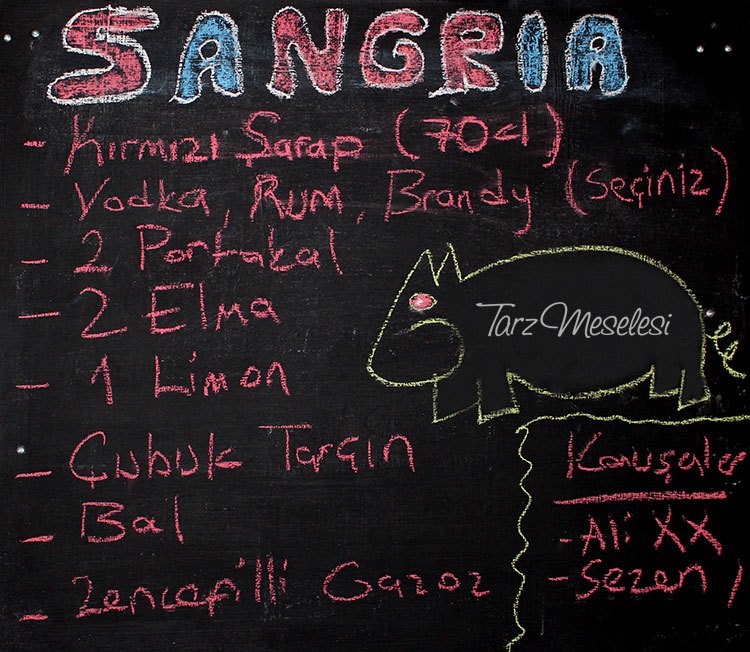 SANGRIA
- Kırmızı Şarap (70cl)
- Vodka, Rum, Brandy (Seçiniz)
- 2 Portakal
- 2 Elma
- 1 Limon
- Çubuk Tarçın
- Bal
- Zencefilli Gazoz
Tarz Meselesi
Kavşaler
- Ali XX
- Sezen /